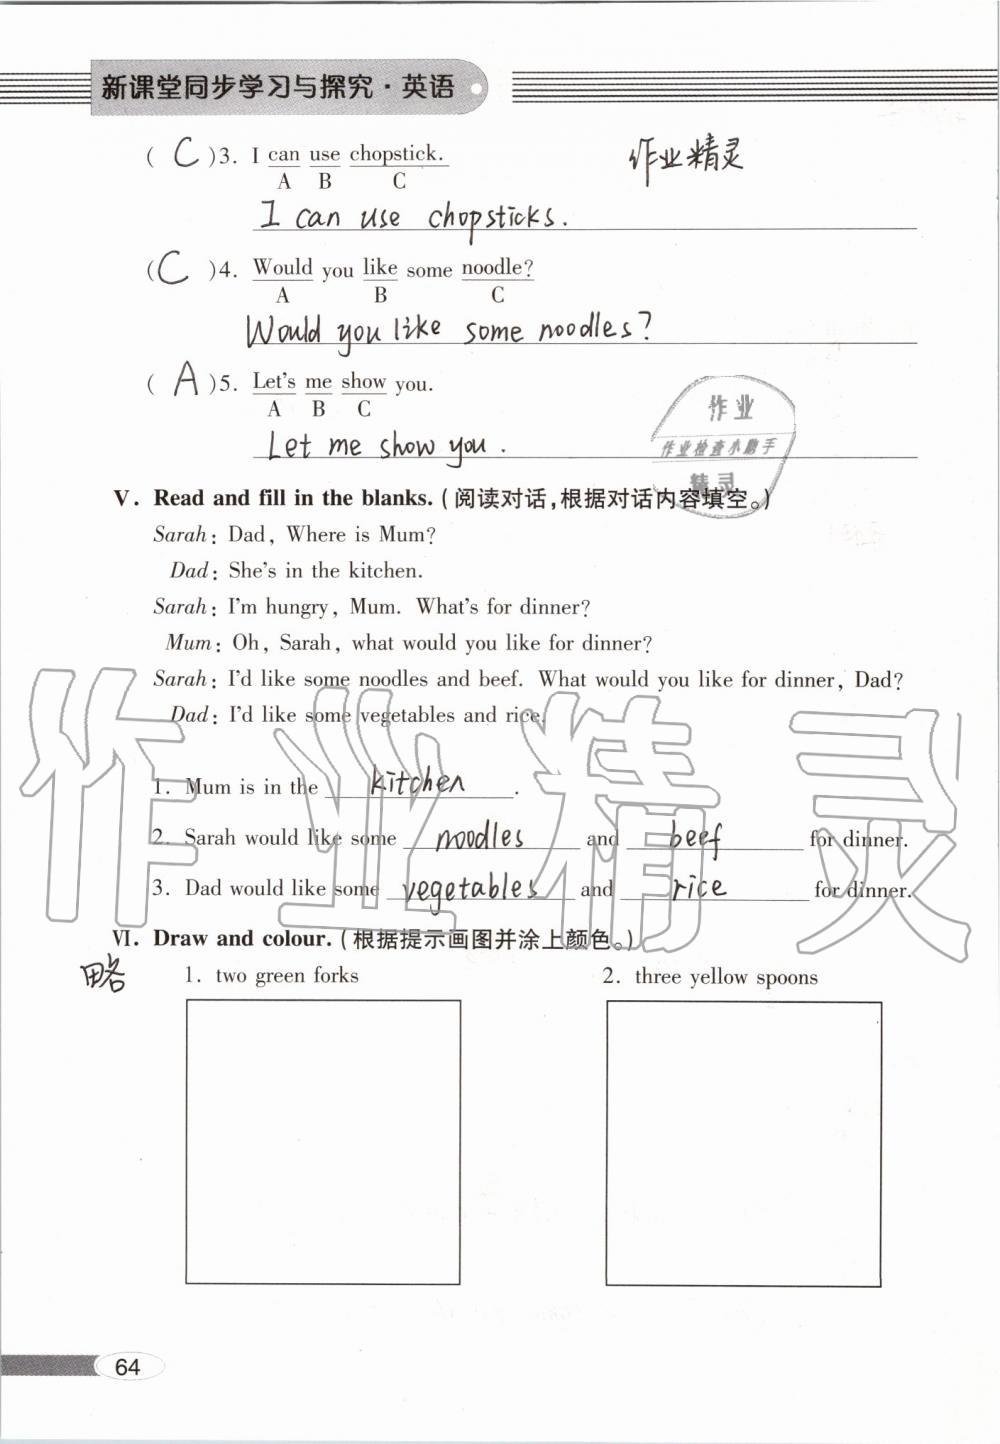 新课堂同步学习与探究·英语
( C )3. I can use chopstick.
作业精灵
A B C
I can use chopsticks.
( C )4. Would you like some noodle?
A B C
Would you like some noodles?
( A )5. Let's me show you.
A B C
Let me show you.
作业
作业检查小助手
精灵
Ⅴ. Read and fill in the blanks.(阅读对话,根据对话内容填空。)
Sarah: Dad, Where is Mum?
Dad: She's in the kitchen.
Sarah: I'm hungry, Mum. What's for dinner?
Mum: Oh, Sarah, what would you like for dinner?
Sarah: I'd like some noodles and beef. What would you like for dinner, Dad?
Dad: I'd like some vegetables and rice.
作业精灵
1. Mum is in the kitchen.
2. Sarah would like some noodles and beef for dinner.
3. Dad would like some vegetables and rice for dinner.
Ⅵ. Draw and colour.(根据提示画图并涂上颜色。)
略
1. two green forks
2. three yellow spoons
64